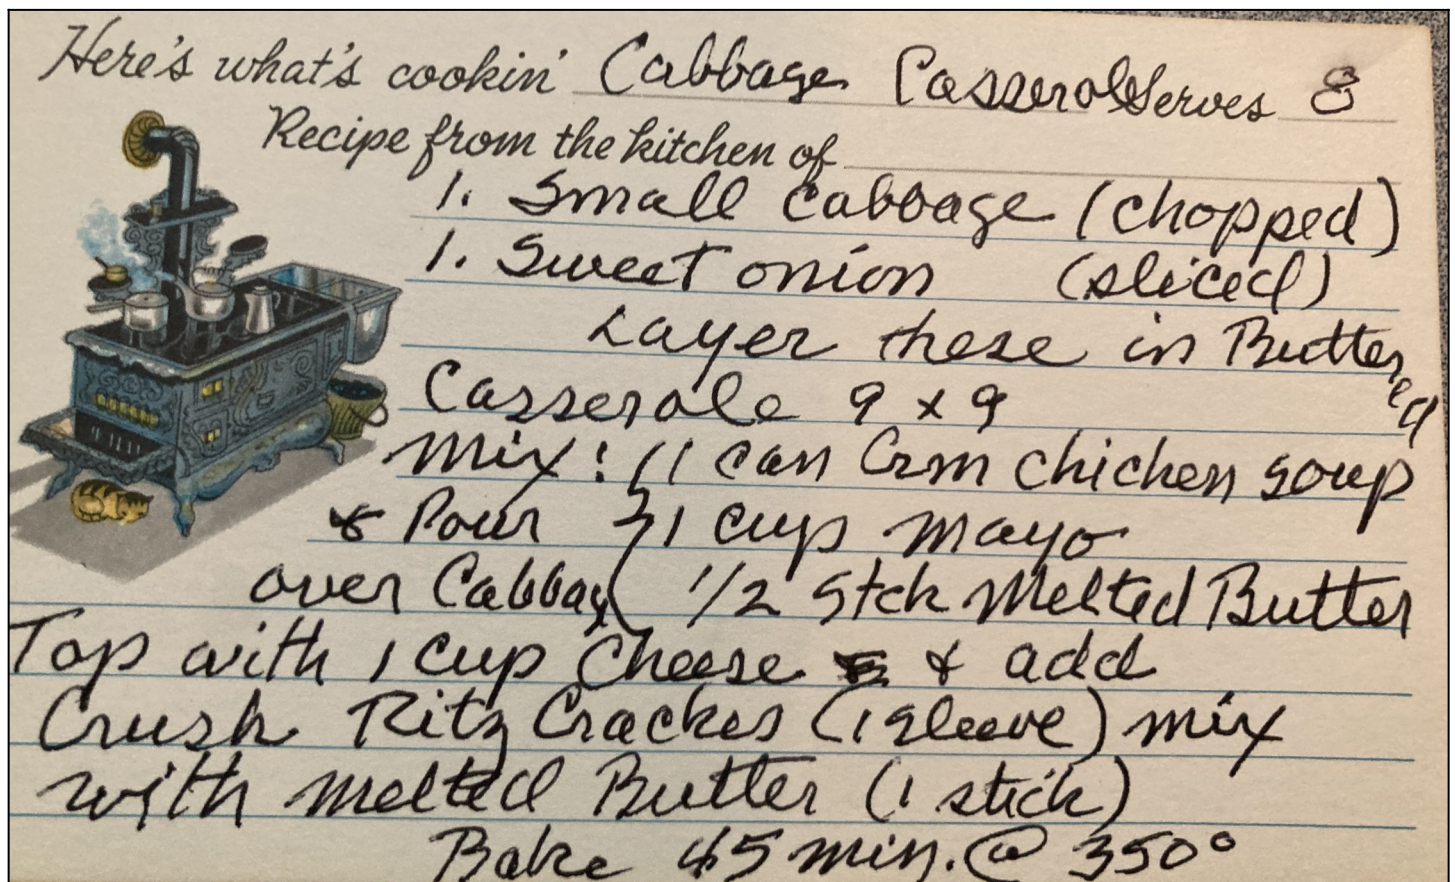 Here's what's cookin' Cabbage Casserole Serves 8
Recipe from the kitchen of
1. Small Cabbage (chopped)
1. Sweet onion (sliced)
Layer these in Buttered
Casserole 9 x 9
Mix: 1 can Crm chicken soup
& Pour 1 cup mayo
over Cabbag 1/2 Stck Melted Butter
Top with 1 cup Cheese & add
Crush Ritz Crackes (1 sleeve) mix
with melted Butter (1 stick)
Bake 45 min. @ 350°